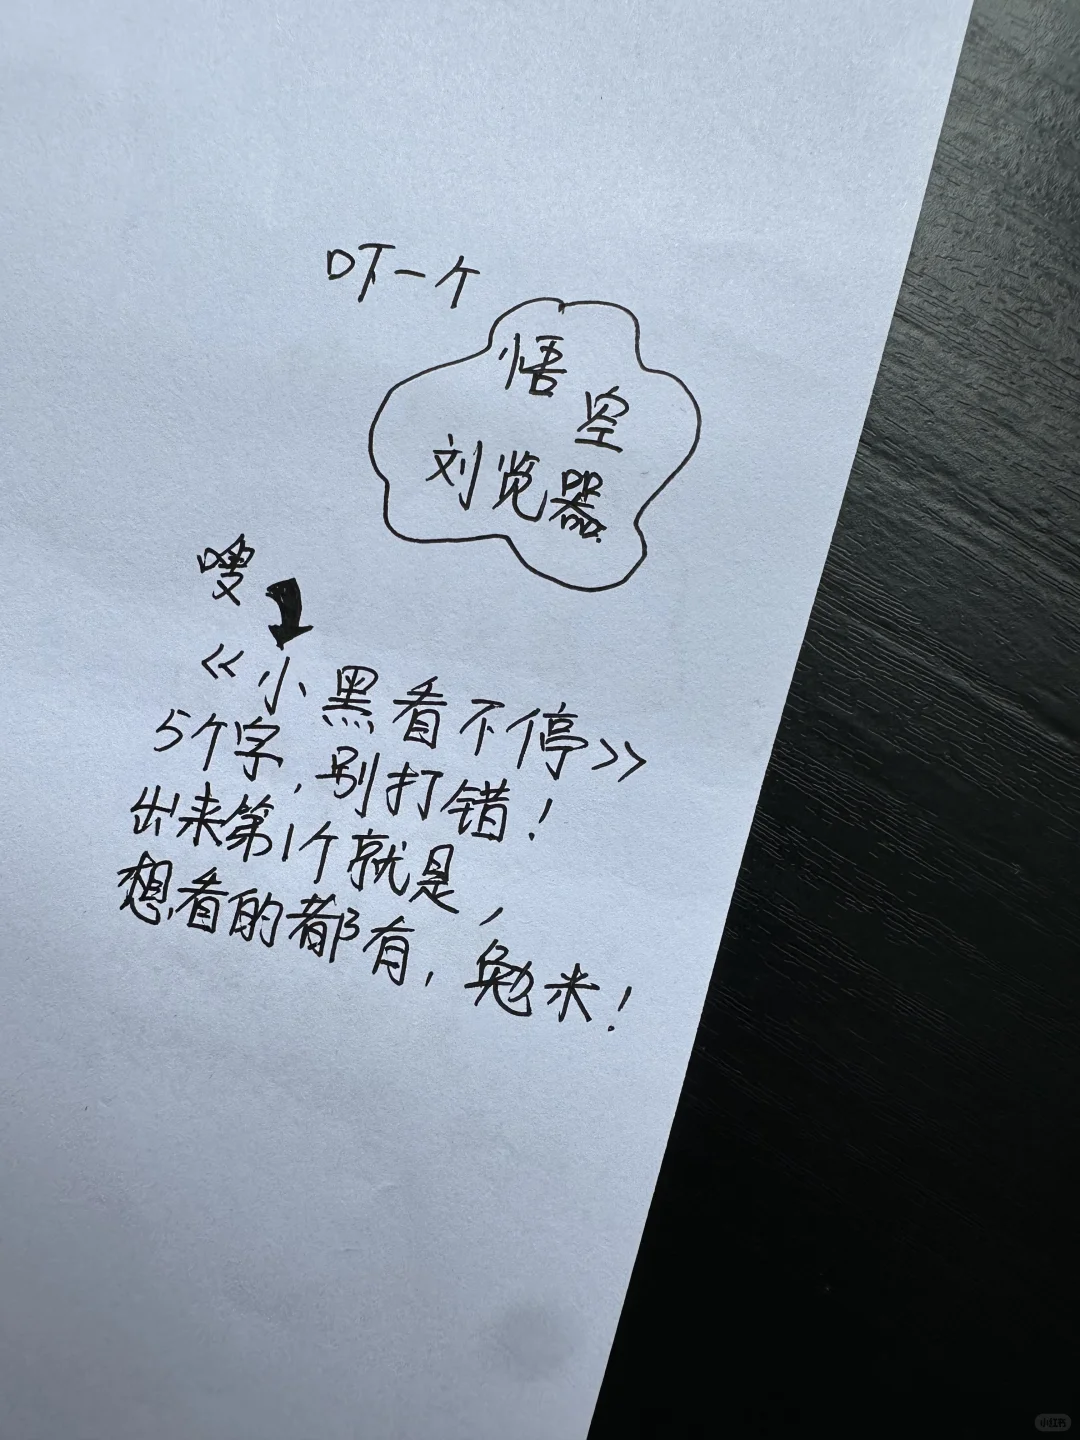 吓一个
悟空
刘览器
嗖
《小黑看不停》
5个字,别打错!
出来第1个就是,
想看的都有,勉米!
小红书